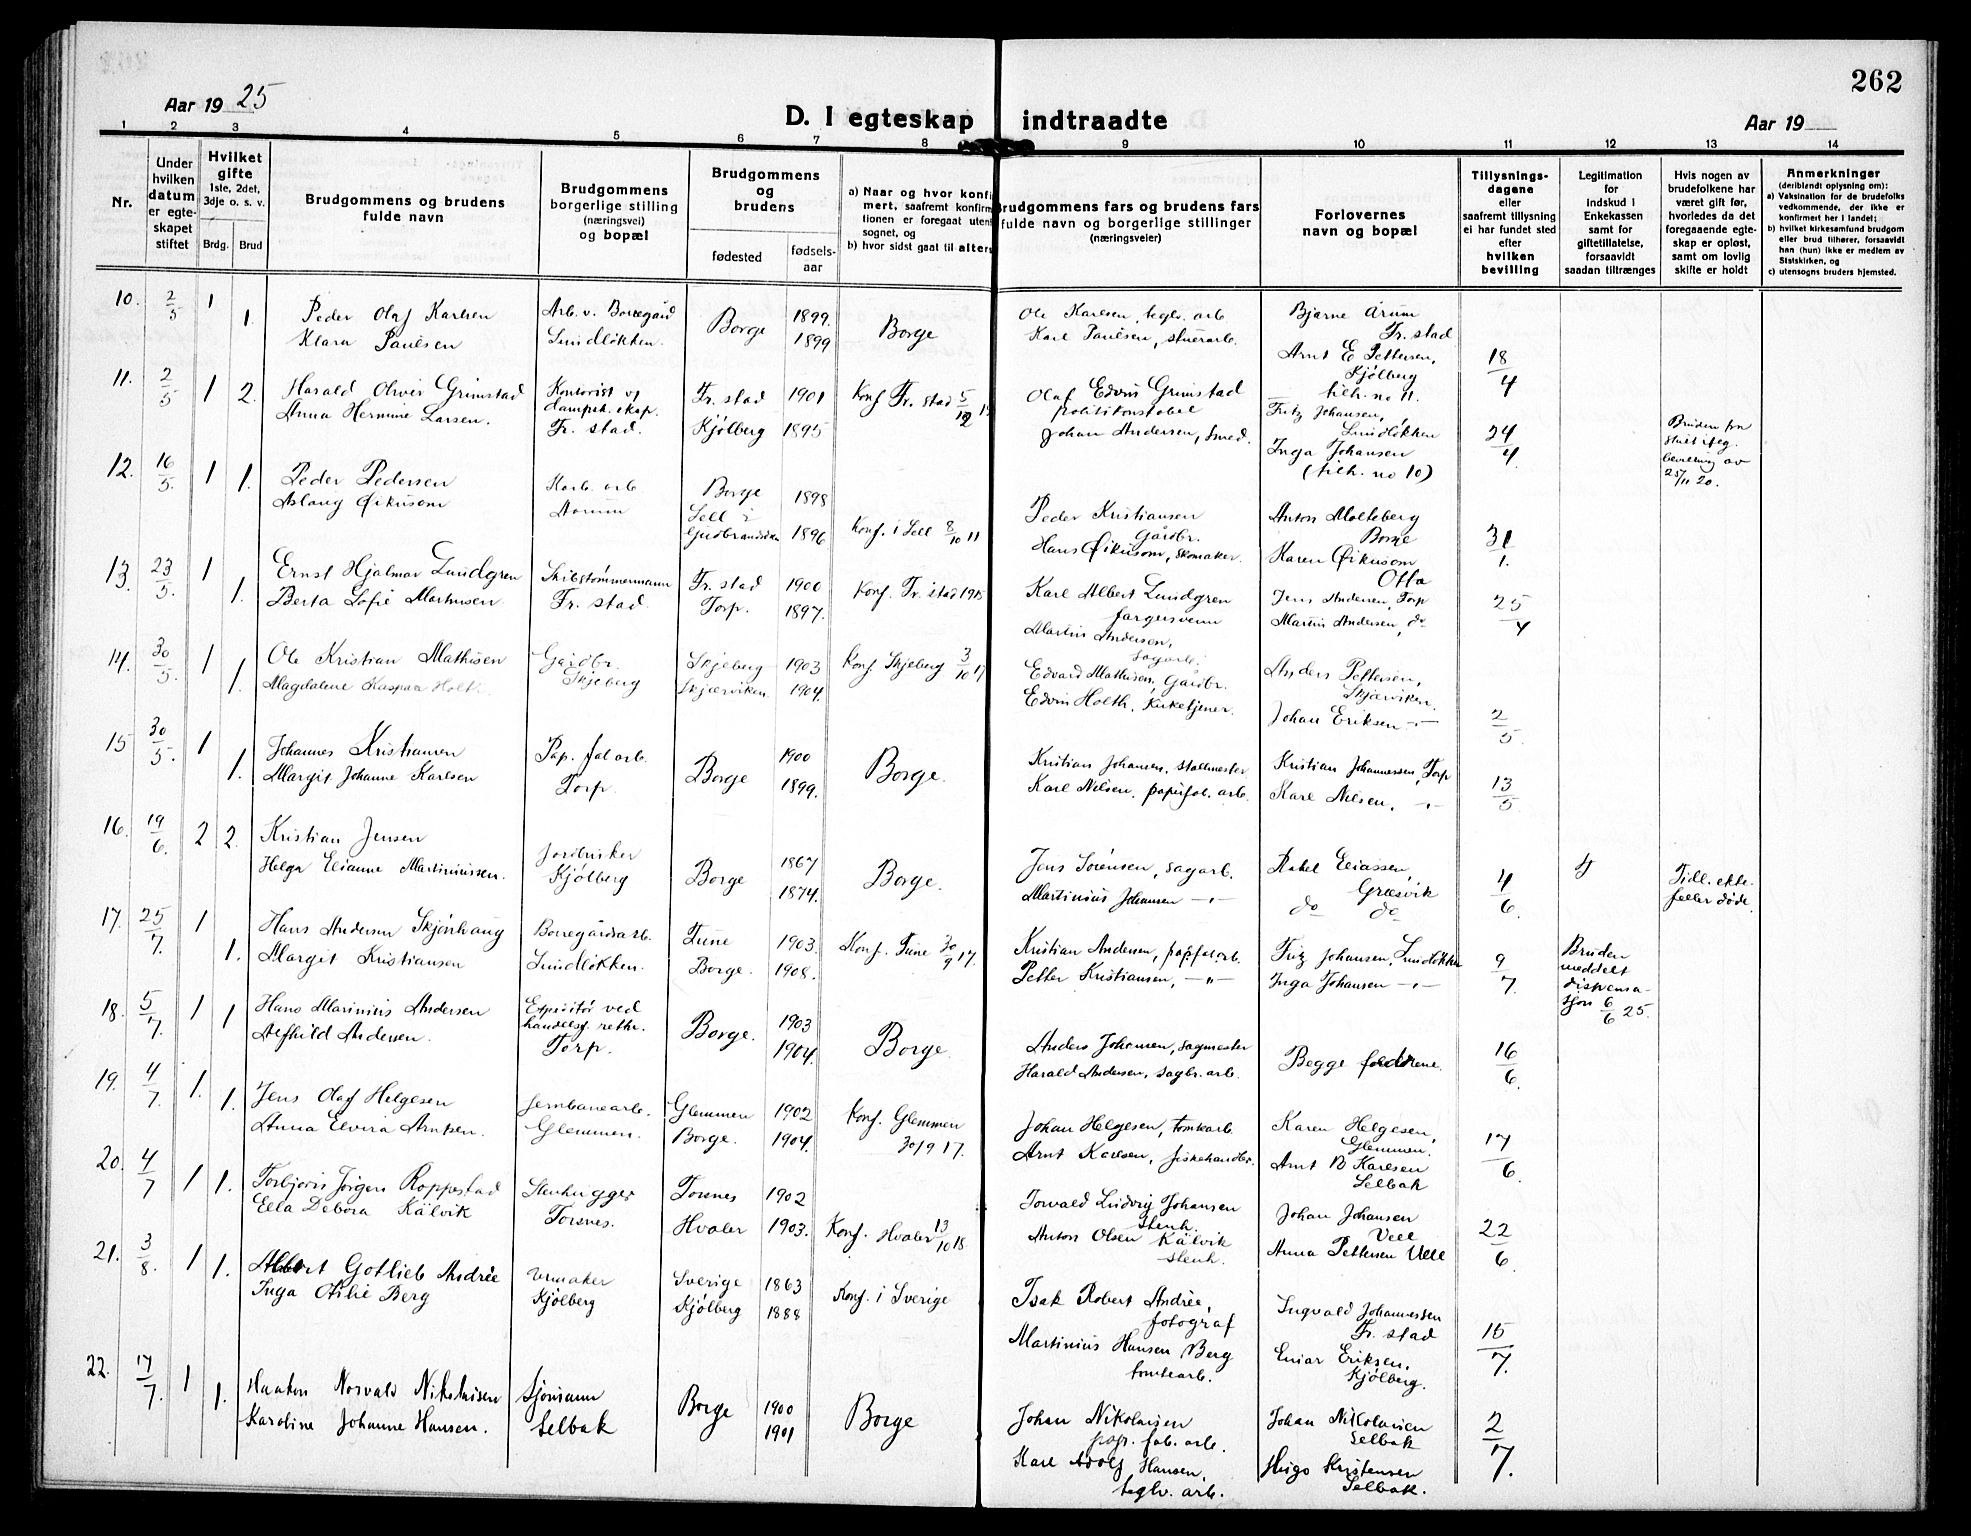 262
Aar 19 25
D. I egteskap indtraadte
Aar 19
1 2 3 4 5 6 7 8 9 10 11 12 13 14
Nr.
Under hvilken datum er egte-skapet stiftet
Hvilket gifte 1ste, 2det, 3dje o. s. v.
Brdg. Brud
Brudgommens og brudens fulde navn
Brudgommens borgerlige stilling (næringsvei) og bopæl
Brudgommens og brudens
fødested fødsels-aar
a) Naar og hvor konfi
mert, saafremt konfirm
tionen er foregaat uten
sognet, og
b) hvor sidst gaat til alters
Brudgommens fars og brudens fars fulde navn og borgerlige stillinger (næringsveier)
Forlovernes navn og bopæl
Tillysnings-dagene eller saafremt tillysning ei har fundet sted efter hvilken bevilling
Legitimation for Indskud i Enkekassen samt for giftetillatelse, forsaavidt saadan tiltrænges
Hvis nogen av brudefolkene har været gift før, hvorledes da det foregaaende egte-skap er opløst, samt om lovlig skifte er holdt
Anmerkninger
(deriblandt oplysning om):
a) Vaksination for de brudefolks vedkommende, der ikke er konfirmert her i landet;
b) hvilket kirkesamfund brudgom eller brud tilhører, forsaavidt han (hun) ikke er medlem av Statskirken, og
c) utensogns bruders hjemsted.
10. 2/5 1 1. Peder Olaf Karlsen Arb. v. Borregård Borge 1899. Borge Ole Karlsen, teglv. arb Bjarne Årum Fr. stad 18/4
Klara Paulsen Lundløkken. 1899 Karl Paulsen, stuerarb. Arnt E Pettersen, Kjølberg
11. 2/5 1 2. Harald Oliver Grimstad Kontorist v/ dampsk. eksp. Fr. stad. Fr. stad 1901 Konf Fr. stad 5/12 Olaf Edvin Grimstad politikonstabel tilh. no 11. Fritz Johansen, Lundløkken 24/4 Bruden fra
Anna Hermine Larsen. Kjølberg 1895 Johan Andersen, smed. Inga Johansen (tilh. no 10) bevilling av 25/11 20.
12. 16/5. 1 1. Peder Pedersen Borge 1898 Peder Kristiansen Gårdbr. Anton Molteberg Borge 31/1.
Aslaug Øikusom Sell i Gudbrandsdalen 1896 Konf. i Sell 8/10 11 Hans Øikusom, skomaker. Karen Øikusom Otta
13. 23/5. 1 1. Ernst Hjalmar Lundgren Skibstømmermann Fr. stad 1900 Konf. Fr. stad 1915 Karl Albert Lundgren fargersvenn Jens Andersen, Torp 25/4
Berta Sofie Martinsen. Fr. stad. Torp. 1897. Martin Andersen, sagarb. Martin Andersen, do
14. 30/5. 1 1. Ole Kristian Mathisen Gårdbr. Skjeberg 1903 Konf Skjeberg 3/10 17 Edvard Mathisen, Gårdbr. Anders Pettersen, Skjærviken. 2/5.
Magdalene Kaspara Holt. Skjeberg Skjærviken. 1904. Edvin Holth, Kirketjener. Johan Eriksen -"-
15 30/5. 1 1. Johannes Kristiansen Pap. fab arb. Borge 1900 Borge. Kristian Johansen, stallmester Kristian Johannessen, Torp 13/5
Margit Johanne Karlsen Torp. 1899. Karl Nilsen, papirfab. arb. Karl Nilsen, -"-
16. 19/6. 2 2. Kristian Jensen Jordbruker Borge 1867 Borge. Jens Sørensen, sagarb. Rakel Eliassen, Græsvik 4/6. Tidl. ekte-
Helga Elianne Martiniussen. Kjølberg 1874. Martinius Johansen -"- do do feller døde.
17. 25/7. 1 1. Hans Andersen Skjønhaug Borregårdsarb. Tune 1903. Konf. Tune 30/9 17. Kristian Andersen, papfabarb. Fritz Johansen, Lundløkken 9/7. Bruden meddelt
Margit Kristiansen Lundløkken. Borge. 1908. Petter Kristiansen, -"- Inga Johansen -"- dispensa-sjon 6/6 25.
18. 5/7. 1 1 Hans Marinius Andersen Ekspeditør ved Borge. 1903 Borge. Anders Johansen, sagmester Begge fædrene. 16/6.
Alfhild Andersen. handelsf. Torp. 1904. Harald Andersen, sagbr. arb.
19. 4/7. 1. 1. Jens Olaf Helgesen Jernbanearb. Glemmen 1902 Konf. Glemmen Johan Helgesen, tomtearb. Karen Helgesen, Glemmen. 17/6.
Anna Elvira Arntsen. Glemmen. Borge. 1904. 30/9 17. Arnt Karlsen, fiskehandler. Arnt B Karlsen Selbak
20. 4/7 1 1. Torbjørn Jørgen Roppestad Stenhugger Torsnes 1902 Torvald Ludvig Johansen stenh. Johan Johansen Vell 22/6.
Ella Debora Kålvik Torsnes. Hvaler 1903. Konf. Hvaler 13/10 18 Anton Olsen Kålvik stenh. Anna Pettersen Vell
21. 3/8. 1 1. Albert Gotlieb Andrée Urmaker Sverige 1863 Konf. i Sverige Isak Robert Andrée, fotograf Ingvald Johannessen Fr. stad 15/7.
Inga Otilie Berg Kjølberg Kjølberg 1888 Martinius Hansen Berg tomtearb. Einar Eriksen, Kjølberg.
22. 17/7. 1 1. Haakon Norvald Nikolaisen Sjømann Borge 1900 Borge Johan Nikolaisen pap. fab. arb. Johan Nikolaisen Selbak 2/7.
Karoline Johanne Hansen. Selbak 1901 Karl Adolf Hansen, teglv. arb. Hugo Kristensen Selbak.